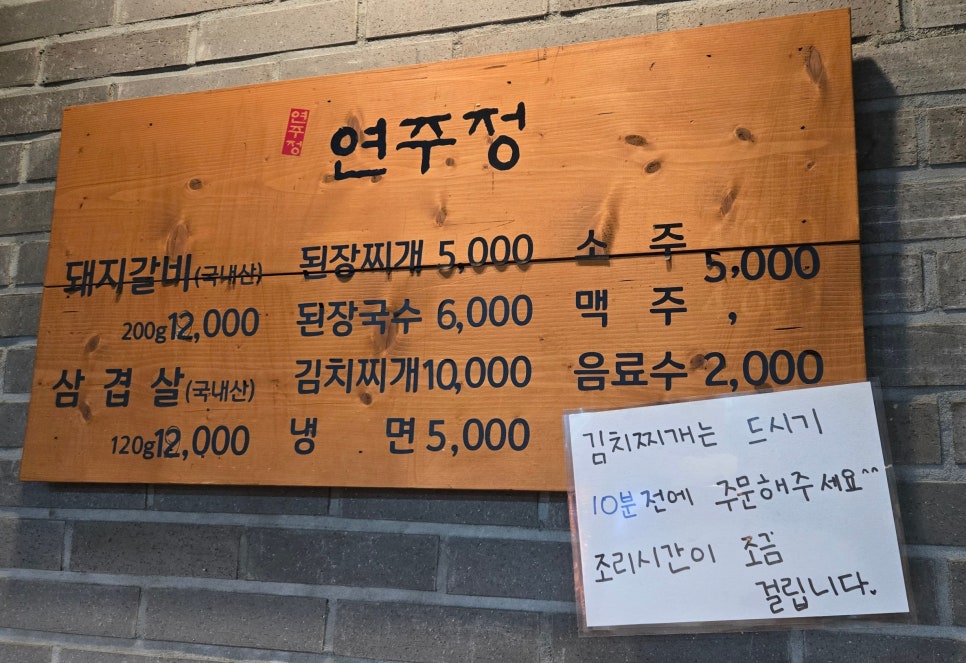 연주정
연주정
돼지갈비(국내산)
200g 12,000
삼겹살(국내산)
120g 12,000
된장찌개 5,000
된장국수 6,000
김치찌개 10,000
냉면 5,000
소주 5,000
맥주 ,
음료수 2,000
김치찌개는 드시기
10분전에 주문해주세요^^
조리시간이 조금
걸립니다.